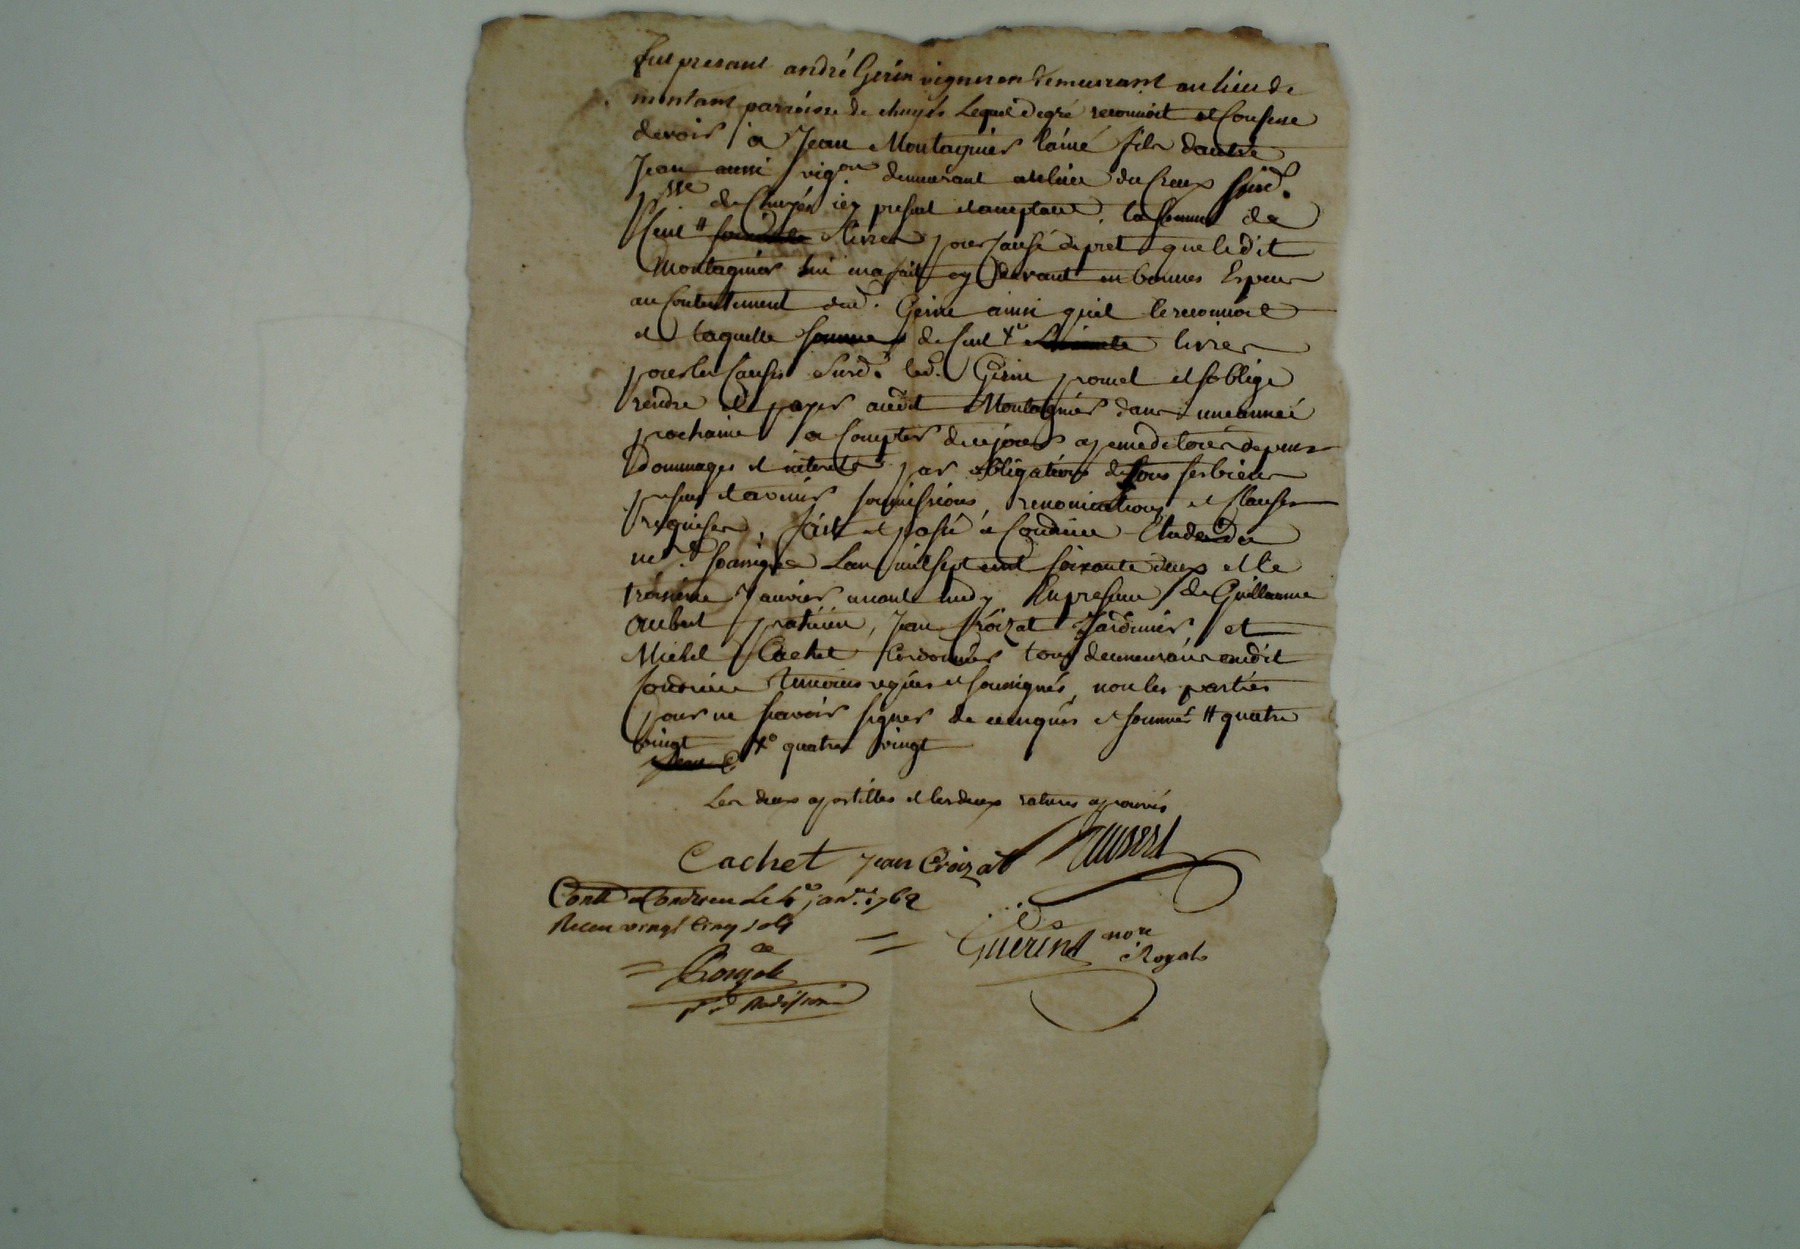 fut presant andré Gerin vigneron demeurant au lieu de
montant parroisse de chuyés Lequel de gré reconnoit et Confesse
devoir a Jean Montagnier lainé fils dautre
Jean aussi vig.on demeurant au lieu du Creux susd.
p.sse de Chuyés icy present et acceptant, la somme de
Cent # livres pour cause de pret que ledit
Montagnier lui en a fait cy devant en bonnes Especes
au Contentement dud. Gerin ainsi quil le reconnoit
et laquelle somme de Cent livres
pour les Causes Susd. led. Gerin promet et soblige
rendre et payer audit Montagnier dans une année
prochaine a Compter de ce jour a peine de tous depens
dommages et interets par obligations de tous ses biens
presens et avenir soumissions, renonciations et Clauses
requises, fait et passé a Condrieu Etude du
no.re soussigné Lan mil sept cent soixante deux et le
troisieme Janvier avant midy En presence de Guillaume
Aubert praticien, Jean Croizat Jardinier, et
Michel Cachet Cordonnier tous demeurans audit
Condrieu temoins requis et soussignés, non les parties
pour ne scavoir signer de ce enquis et sommés # quatre
vingt quatre vingt
Les deux apostilles et les deux ratures aprouvés
Cachet Jean Croizat Aubert
Conté a Condrieu Le 4e janv. 1762
Receu vingt Cinq sols
Guerin no.re Royal